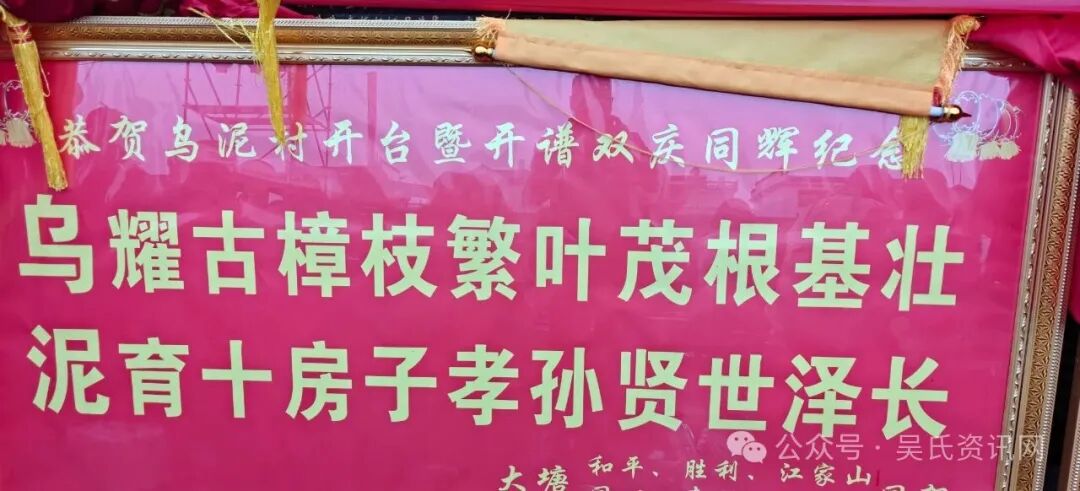 恭贺乌泥村开台暨开谱双庆同辉纪念
乌耀古樟枝繁叶茂根基壮
泥育十房子孝孙贤世泽长
大塘 和平、胜利、江家山
公众号·吴氏资讯网